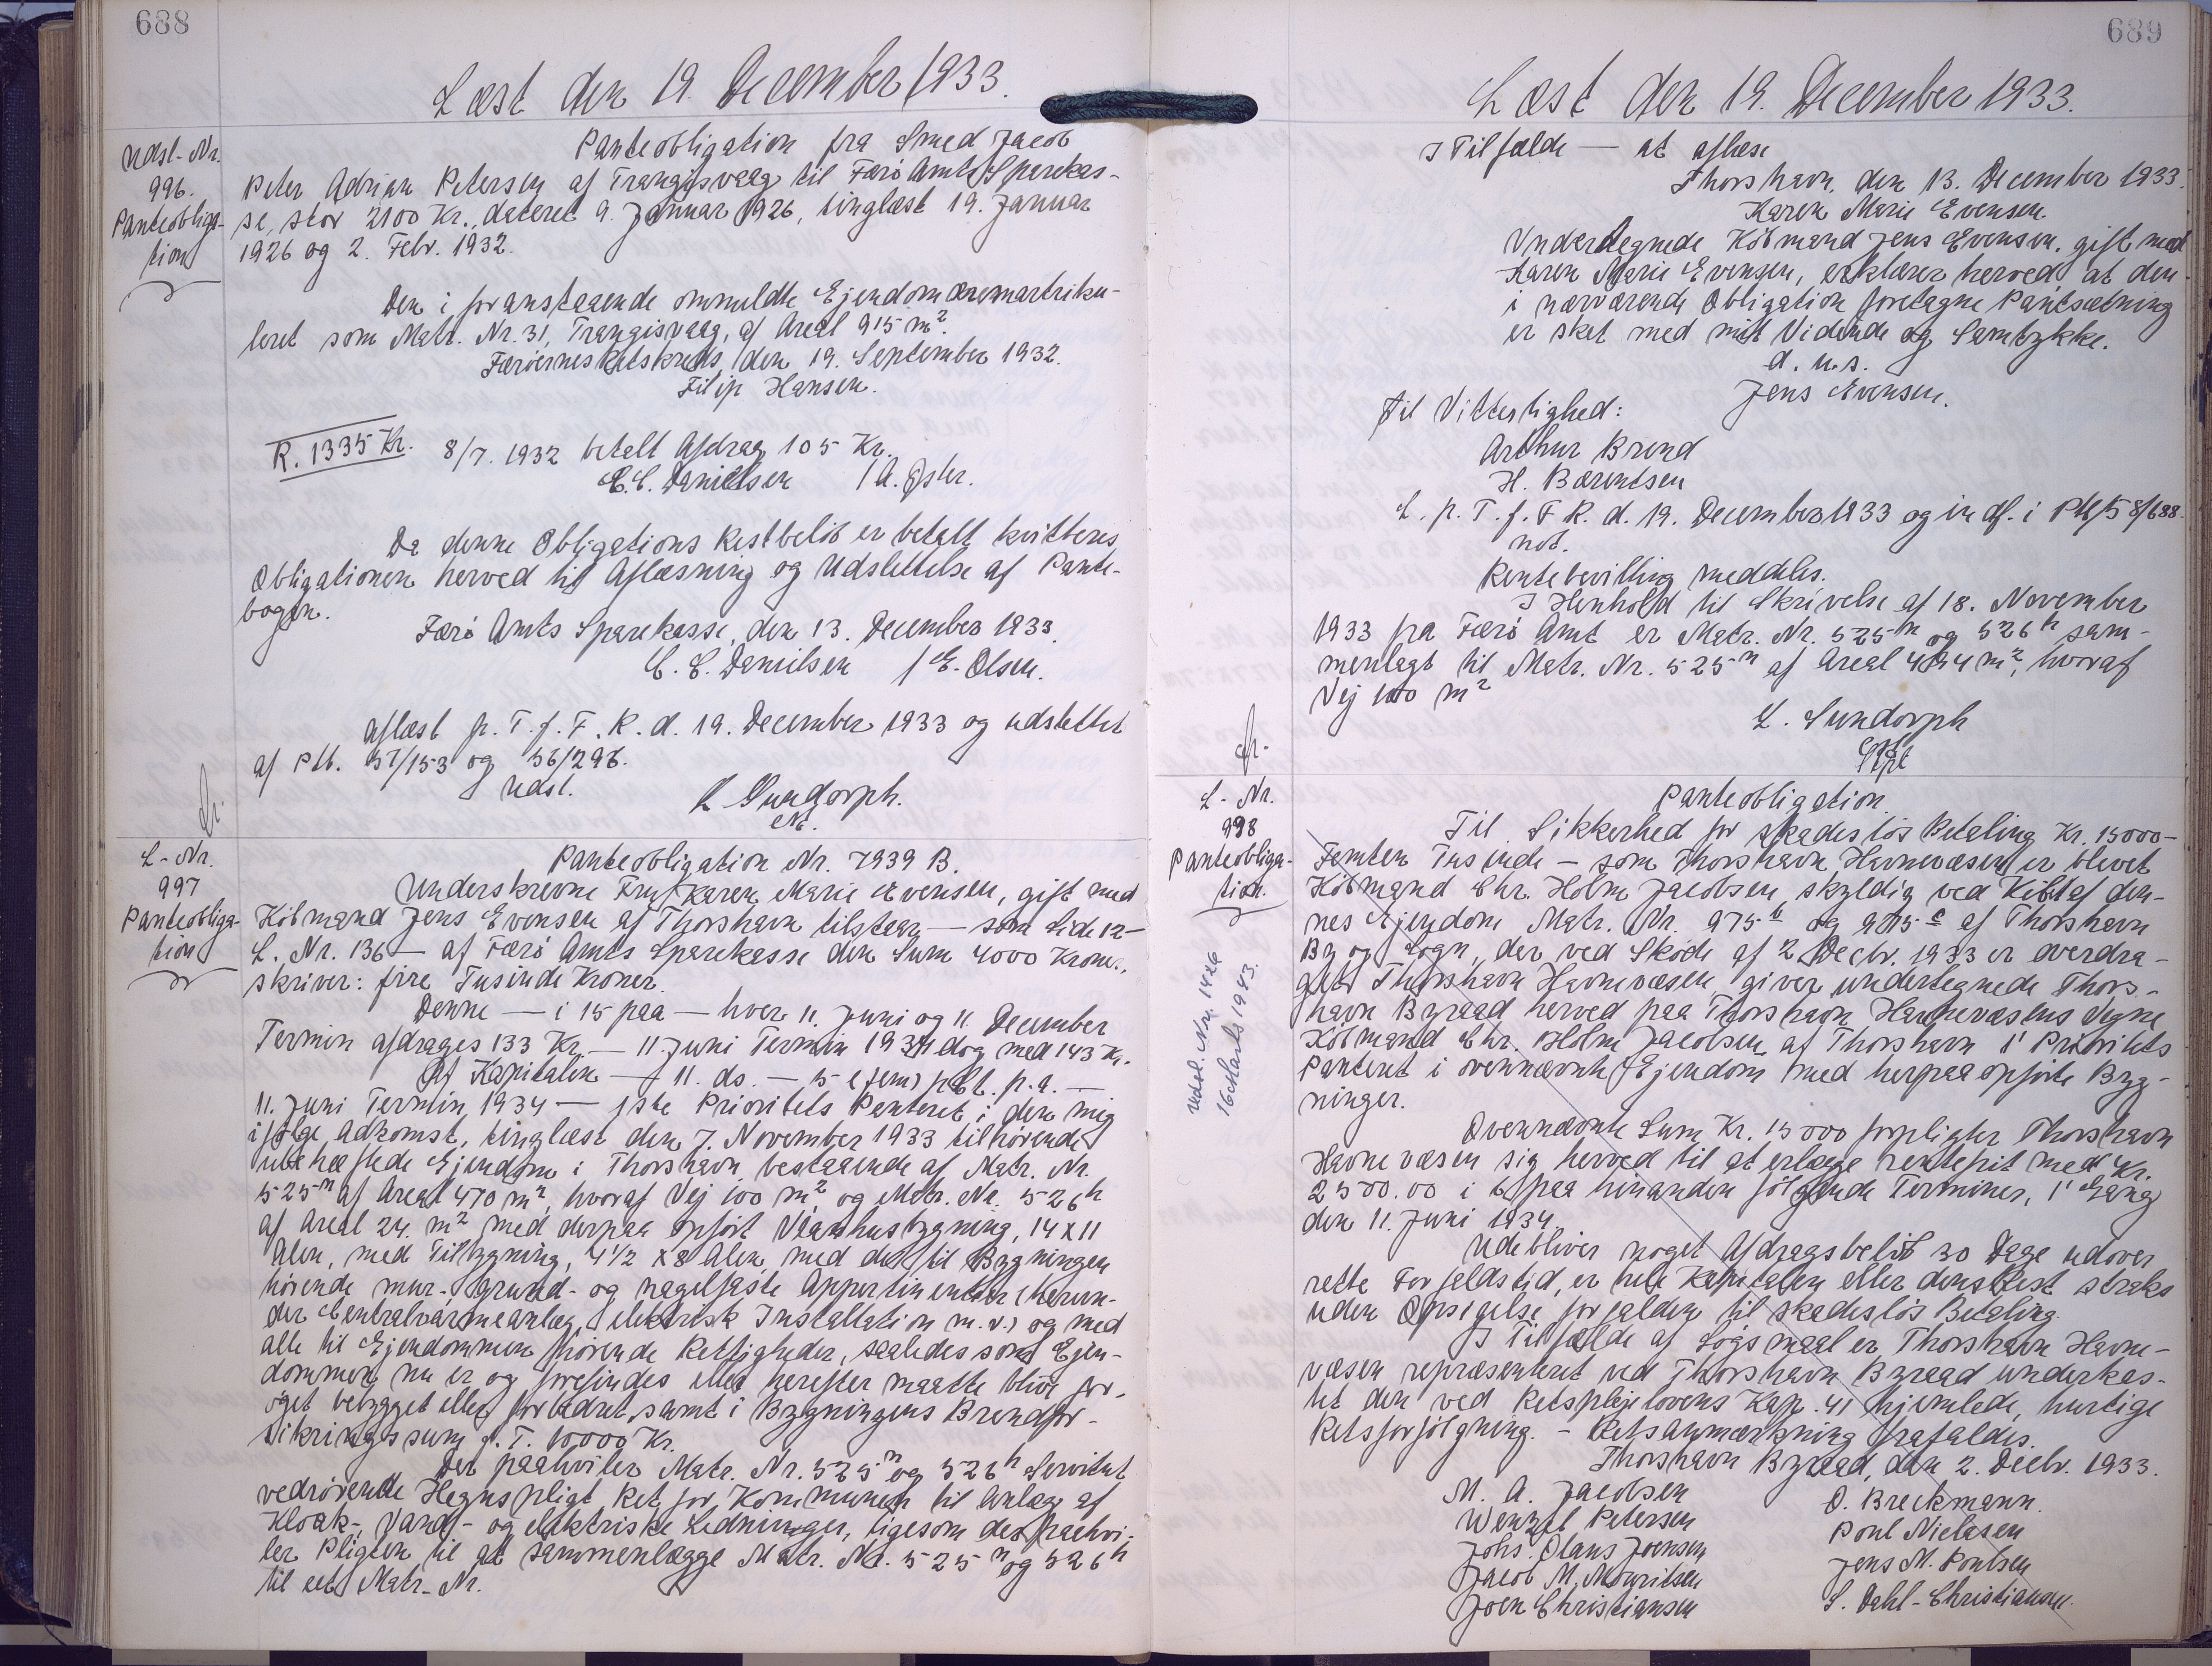 688
Læst den 19. December 1933.
Udsl-Nr.
996.
Panteobliga-
tion
Panteobligation fra Smed Jacob
Peter Adrian Petersen af Trangisvaag til Færø Amts Sparekas-
se, stor 2100 Kr., dateret 9. Januar 1926, tinglæst 19. Januar
1926 og 2. Febr. 1932.
Den i foranstaaende ommeldte Ejendom er matriku-
leret som Matr. Nr. 31, Trangisvaag, af Areal 915 m².
Færøernes Retskreds, den 19. September 1932.
Filip Hansen.
R. 1335 Kr. 8/7. 1932 betalt Afdrag 105 Kr.
C. C. Danielsen / A.
Da denne Obligations Restbeløb er betalt kvitteres
Obligationen herved til Aflæsning og Udslettelse af Pante-
bogen.
Færø Amts Sparekasse, den 13. December 1933.
C. C. Danielsen / E. Olsen.
Aflæst p. T. f. F. R. d. 19. December 1933 og udslettet
af Ptb. 57/153 og 56/296.
Udsl.
L Sundorph.
L-Nr.
997
Panteobliga-
tion
Panteobligation Nr. 7939 B.
Underskrevne Fru Karen Marie Evensen, gift med
Købmand Jens Evensen af Thorshavn tilstaar — som Side 12 —
L. Nr. 136 — af Færø Amts Sparekasse den Sum 4000 Kroner,
skriver: fire Tusinde Kroner.
Denne — i 15 paa — hver 11. Juni og 11. December
Termin afdrages 133 Kr. — 11 Juni Termin 1934 dog med 143 Kr.
Af Kapitalen — 11. ds. — 5 (fem) pCt. p.a. —
11. Juni Termin 1934 — 1ste Prioritets Panteret i den mig
ifølge Adkomst, tinglæst den 7. November 1933 tilhørende
ubehæftede Ejendom i Thorshavn bestaaende af Matr. Nr.
525ᵐ af Areal 470 m², hvoraf Vej 100 m² og Matr. Nr. 526ʰ
af Areal 24. m² med derpaa opført Vaanhusbygning, 14 x 11
Alen, med Tilbygning, 4 1/2 x 8 Alen, med de til Bygningen
hørende mur- grund- og nagelfaste Appertinentier (herun-
der Centralvarmeanlæg, elektrisk Installation m.v.) og med
alle til Ejendommen hørende Rettigheder, saaledes som Ejen-
dommen nu er og forefindes eller herefter maatte blive for-
øget bebygget eller forbedret, samt i Bygningens Brandfor-
sikringssum p. T. 10000 Kr.
Der paahviler Matr. Nr. 525ᵐ og 526ʰ Servitut
vedrørende Hegnspligt, Ret for Kommunen til Anlæg af
Kloak-, Vand- og elektriske Ledninger, ligesom der paahvi-
ler Pligten til at sammenlægge Matr. Nr. 525ᵐ og 526ʰ
til eet Matr.-Nr.
689
Læst den 19. December 1933.
I Tilfælde — at aflæse
Thorshavn, den 13. December 1933.
Karen Marie Evensen
Undertegnede Købmand Jens Evensen, gift med
Karen Marie Evensen, erklærer herved, at den
i nærværende Obligation foretagne Pantsætning
er sket med mit Vidende og Samtykke.
d. u. s.
Jens Evensen.
Til Vitterlighed:
Arthur Brend
H. Bærentsen
L. p. T. f. F R. d. 19. December 1933 og indf. i Ptb 58/688.
not.
Rentebevilling meddeles.
I Henhold til Skrivelse af 18. November
1933 fra Færø Amt er Matr. Nr. 525ᵐ og 526ʰ sam-
menlagt til Matr. Nr. 525ᵐ af Areal 494 m², hvoraf
Vej 100 m²
L. Sundorph
L-Nr.
998
Panteobliga-
tion.
Udsl. Nr. 1426
16 Marts 1943.
Panteobligation
Til Sikkerhed for skadesløs Betaling Kr. 15000 —
Femten Tusinde — som Thorshavn Havnevæsen er blevet
Købmand Chr. Holm Jacobsen skyldig ved Køb af den-
nes Ejendom Matr. Nr. 975ᵇ og 975ᶜ af Thorshavn
By og Sogn, der ved Skøde af 2 Decbr. 1933 er overdra-
get Thorshavn Havnevæsen, giver undertegnede Thors-
havn Byraad herved paa Thorshavn Havnevæsens Vegne
Købmand Chr. Holm Jacobsen af Thorshavn 1' Prioritets
Panteret i ovennævnte Ejendom med herpaa opførte Byg-
ninger.
Ovennævnte Sum Kr. 15000 forpligter Thorshavn
Havnevæsen sig herved til at erlægge rentefrit med Kr.
2500.00 i 6 paa hinanden følgende Terminer, 1' Gang
den 11. Juni 1934.
Udebliver noget Afdragsbeløb 30 Dage udover
rette Forfaldstid, er hele Kapitalen eller dens Rest straks
uden Opsigelse forfalden til skadesløs Betaling.
I Tilfælde af Søgsmaal er Thorshavn Havne-
væsen repræsenteret ved Thorshavn Byraad underkas-
tet den ved Retsplejelovens Kap. 41 hjemlede, hurtige
Retsforfølgning. - Retsanmærkning frafaldes.
Thorshavn Byraad, den 2. Decbr. 1933.
M. A. Jacobsen O. Breckmann.
Wenzel Petersen Poul Nielsen
Johs. Olaus Joensen Jens M. Poulsen
Jacob M. Mouritsen S. Dahl-Christiansen.
Joen Christiansen